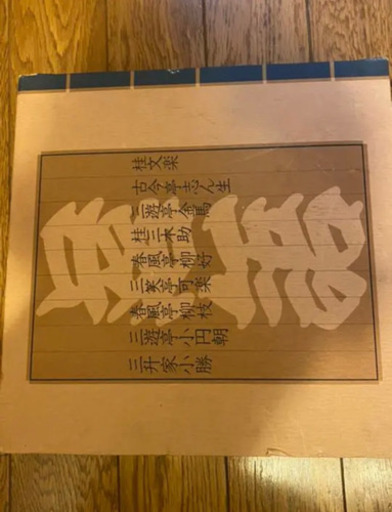 桂文楽
古今亭志ん生
三遊亭金馬
桂三木助
春風亭柳好
三笑亭可楽
春風亭柳枝
三遊亭小円朝
三升家小勝